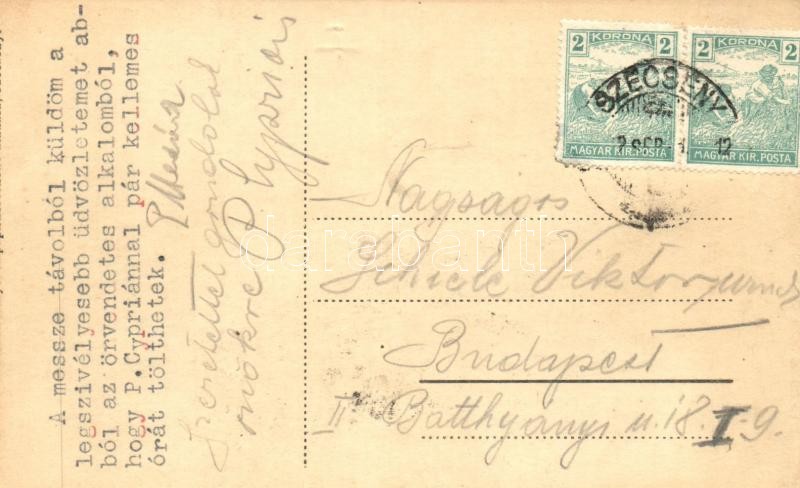 A messze távolból küldöm a
legszivélyesebb üdvözletemet ab-
ból az örvendetes alkalomból,
hogy P.Cypriánnal pár kellemes
órát tölthetek.
Szeretettel gondolat
önökre P. Cyprián
2 KORONA
MAGYAR KIR. POSTA
2 KORONA
MAGYAR KIR. POSTA
SZÉCSÉNY
Nagságos
Viktor urnak
Budapest
II. Batthyány u. 18. I. 9.
darabanth